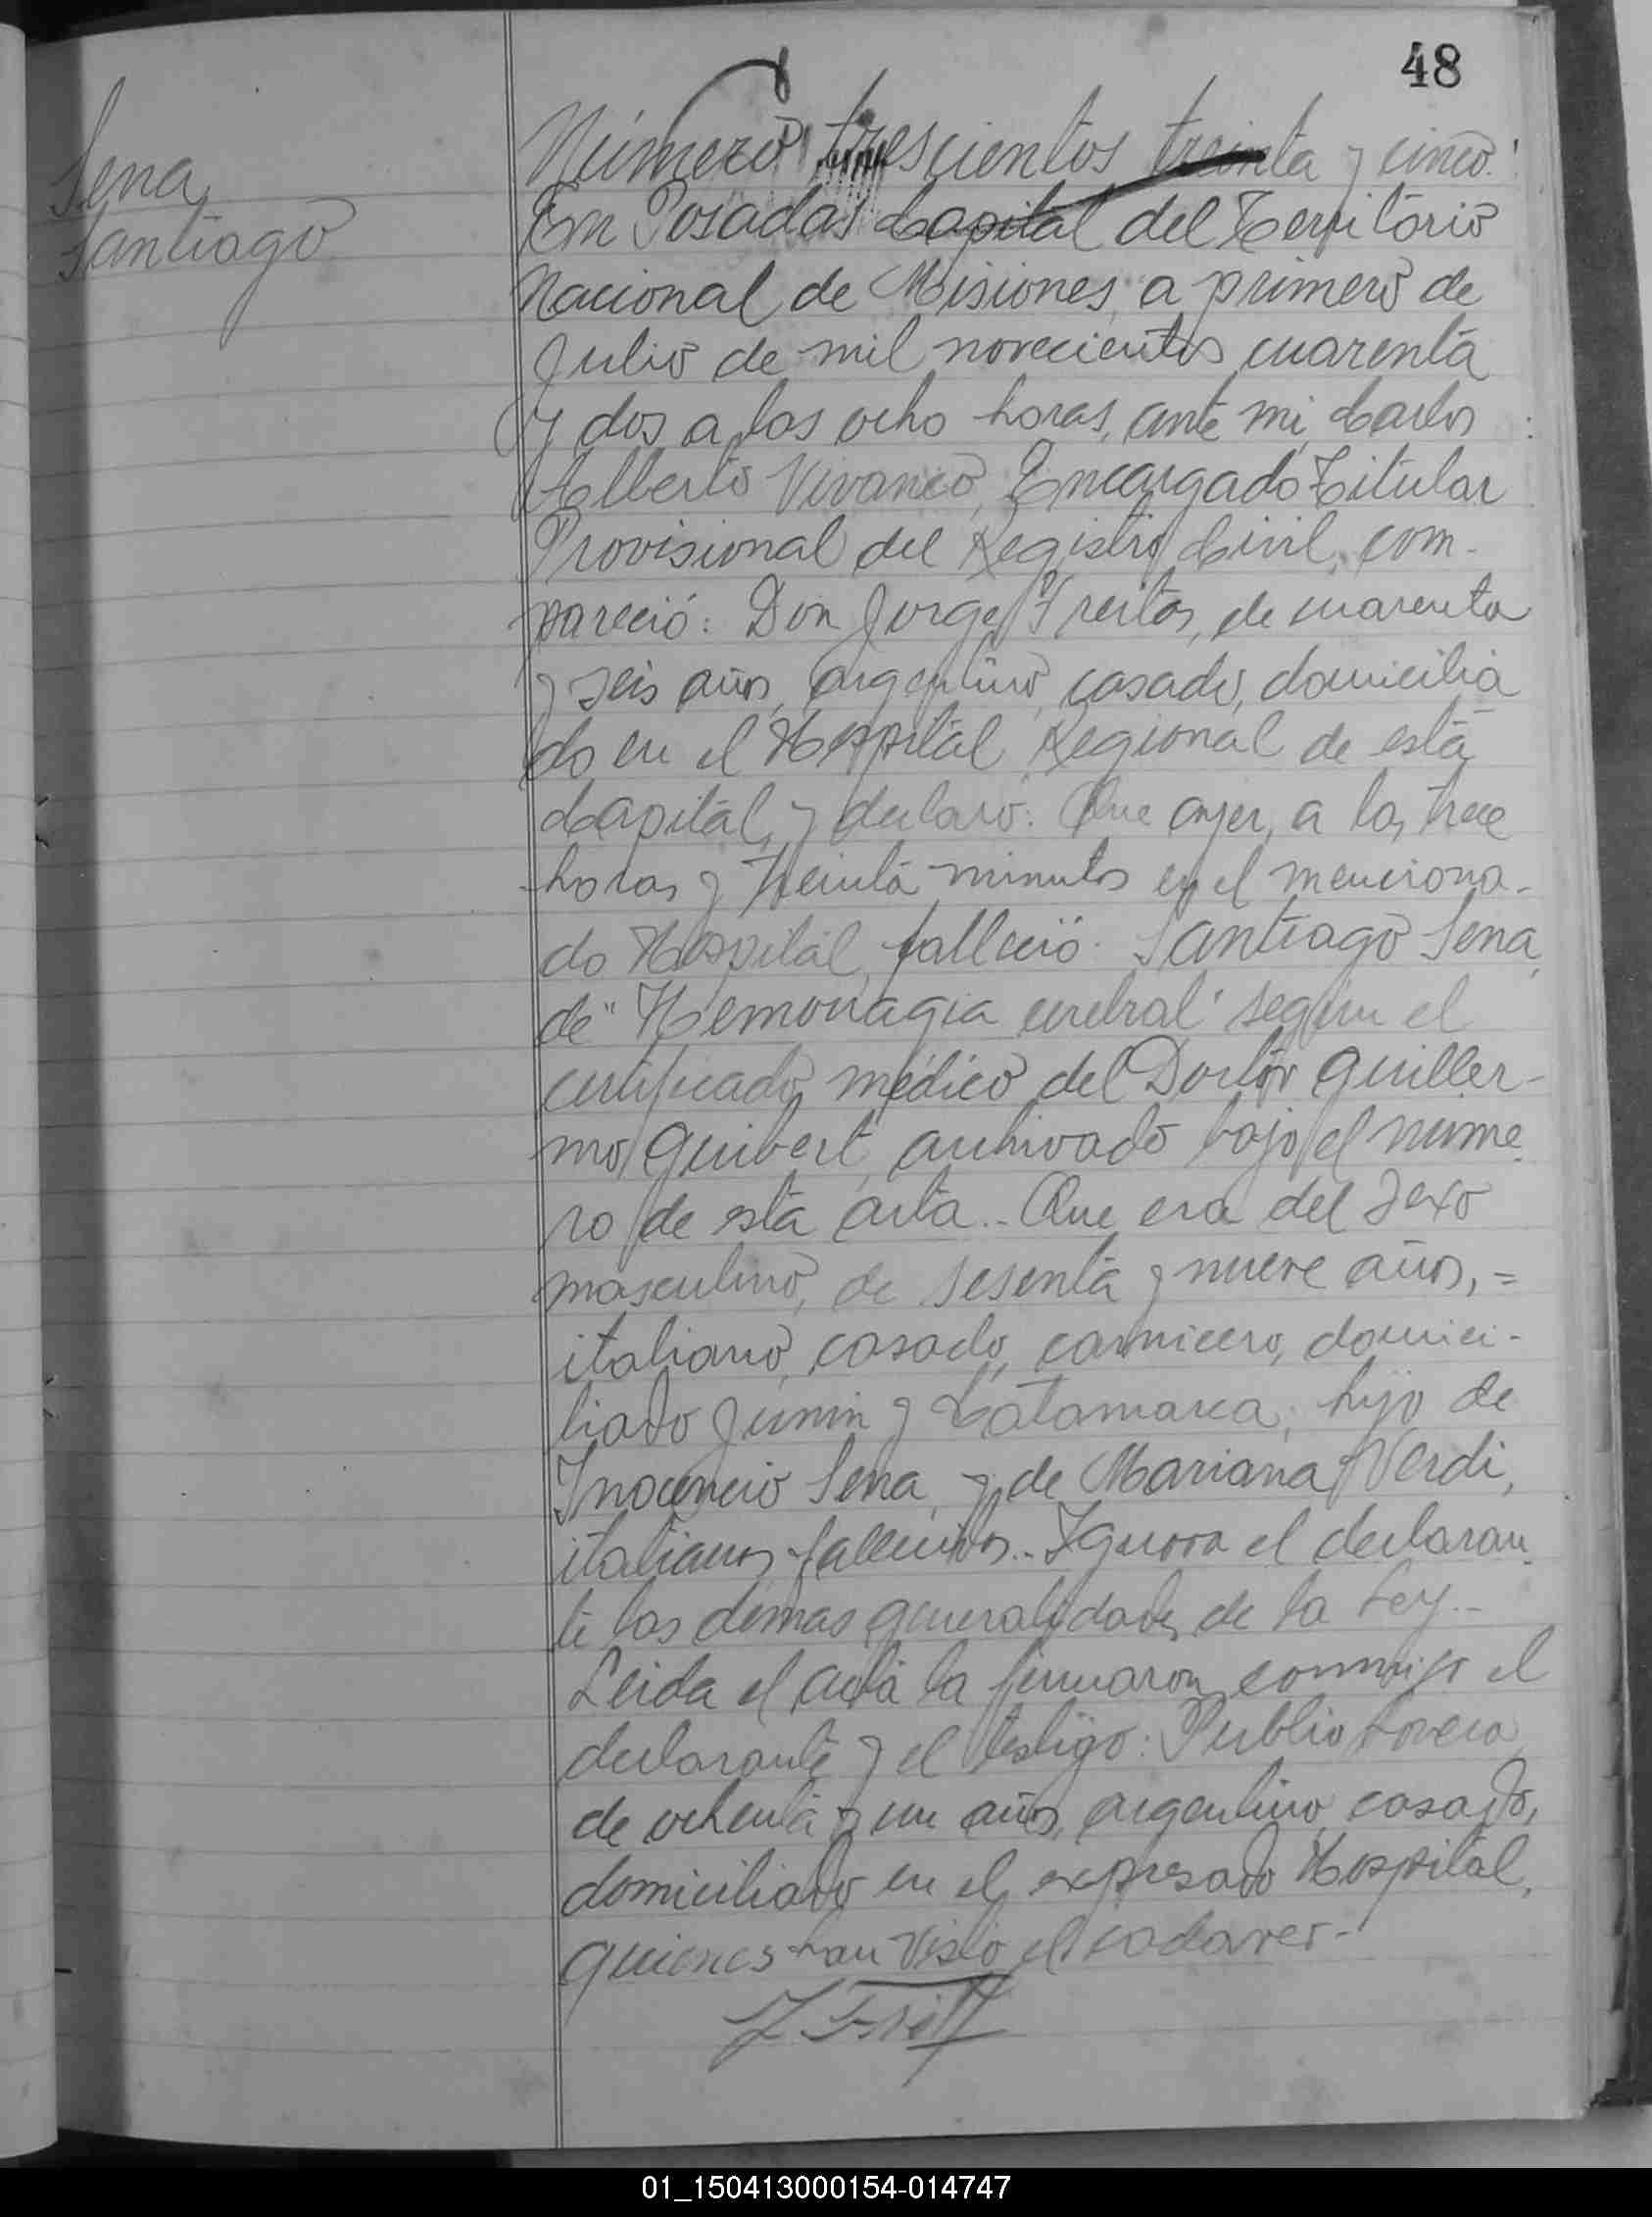 48
Sena
Santiago
Número trescientos treinta y cinco:
En Posadas Capital del Territorio
Nacional de Misiones, a primero de
Julio de mil novecientos cuarenta
y dos a las ocho horas, ante mi, Carlos
Alberto Vivanco, Encargado Titular
Provisional del Registro Civil, com-
pareció: Don Jorge Freitas, de cuarenta
y seis años, argentino, casado, domicilia
do en el Hospital Regional de esta
Capital, y declaro: Que ayer, a las trece
horas y treinta minutos en el menciona-
do Hospital, falleció: Santiago Sena,
de "Hemorragia cerebral" según el
certificado médico del Doctor Guiller-
mo Guibert, archivado bajo el núme-
ro de esta acta.. Que era del sexo
masculino, de sesenta y nueve años, =
italiano, casado, carnicero, domici-
liado Junin y Catamarca, hijo de
Inocencio Sena, y de Mariana Verdi,
italianos fallecidos.. Ignora el declaran-
te las demas generalidades de la Ley..-
Leida el acta la firmaron conmigo el
declarante y el testigo: Publio
de ochenta y un años, argentino, casado,
domiciliado en el expresado Hospital,
quienes han visto el cadaver-
01_150413000154-014747